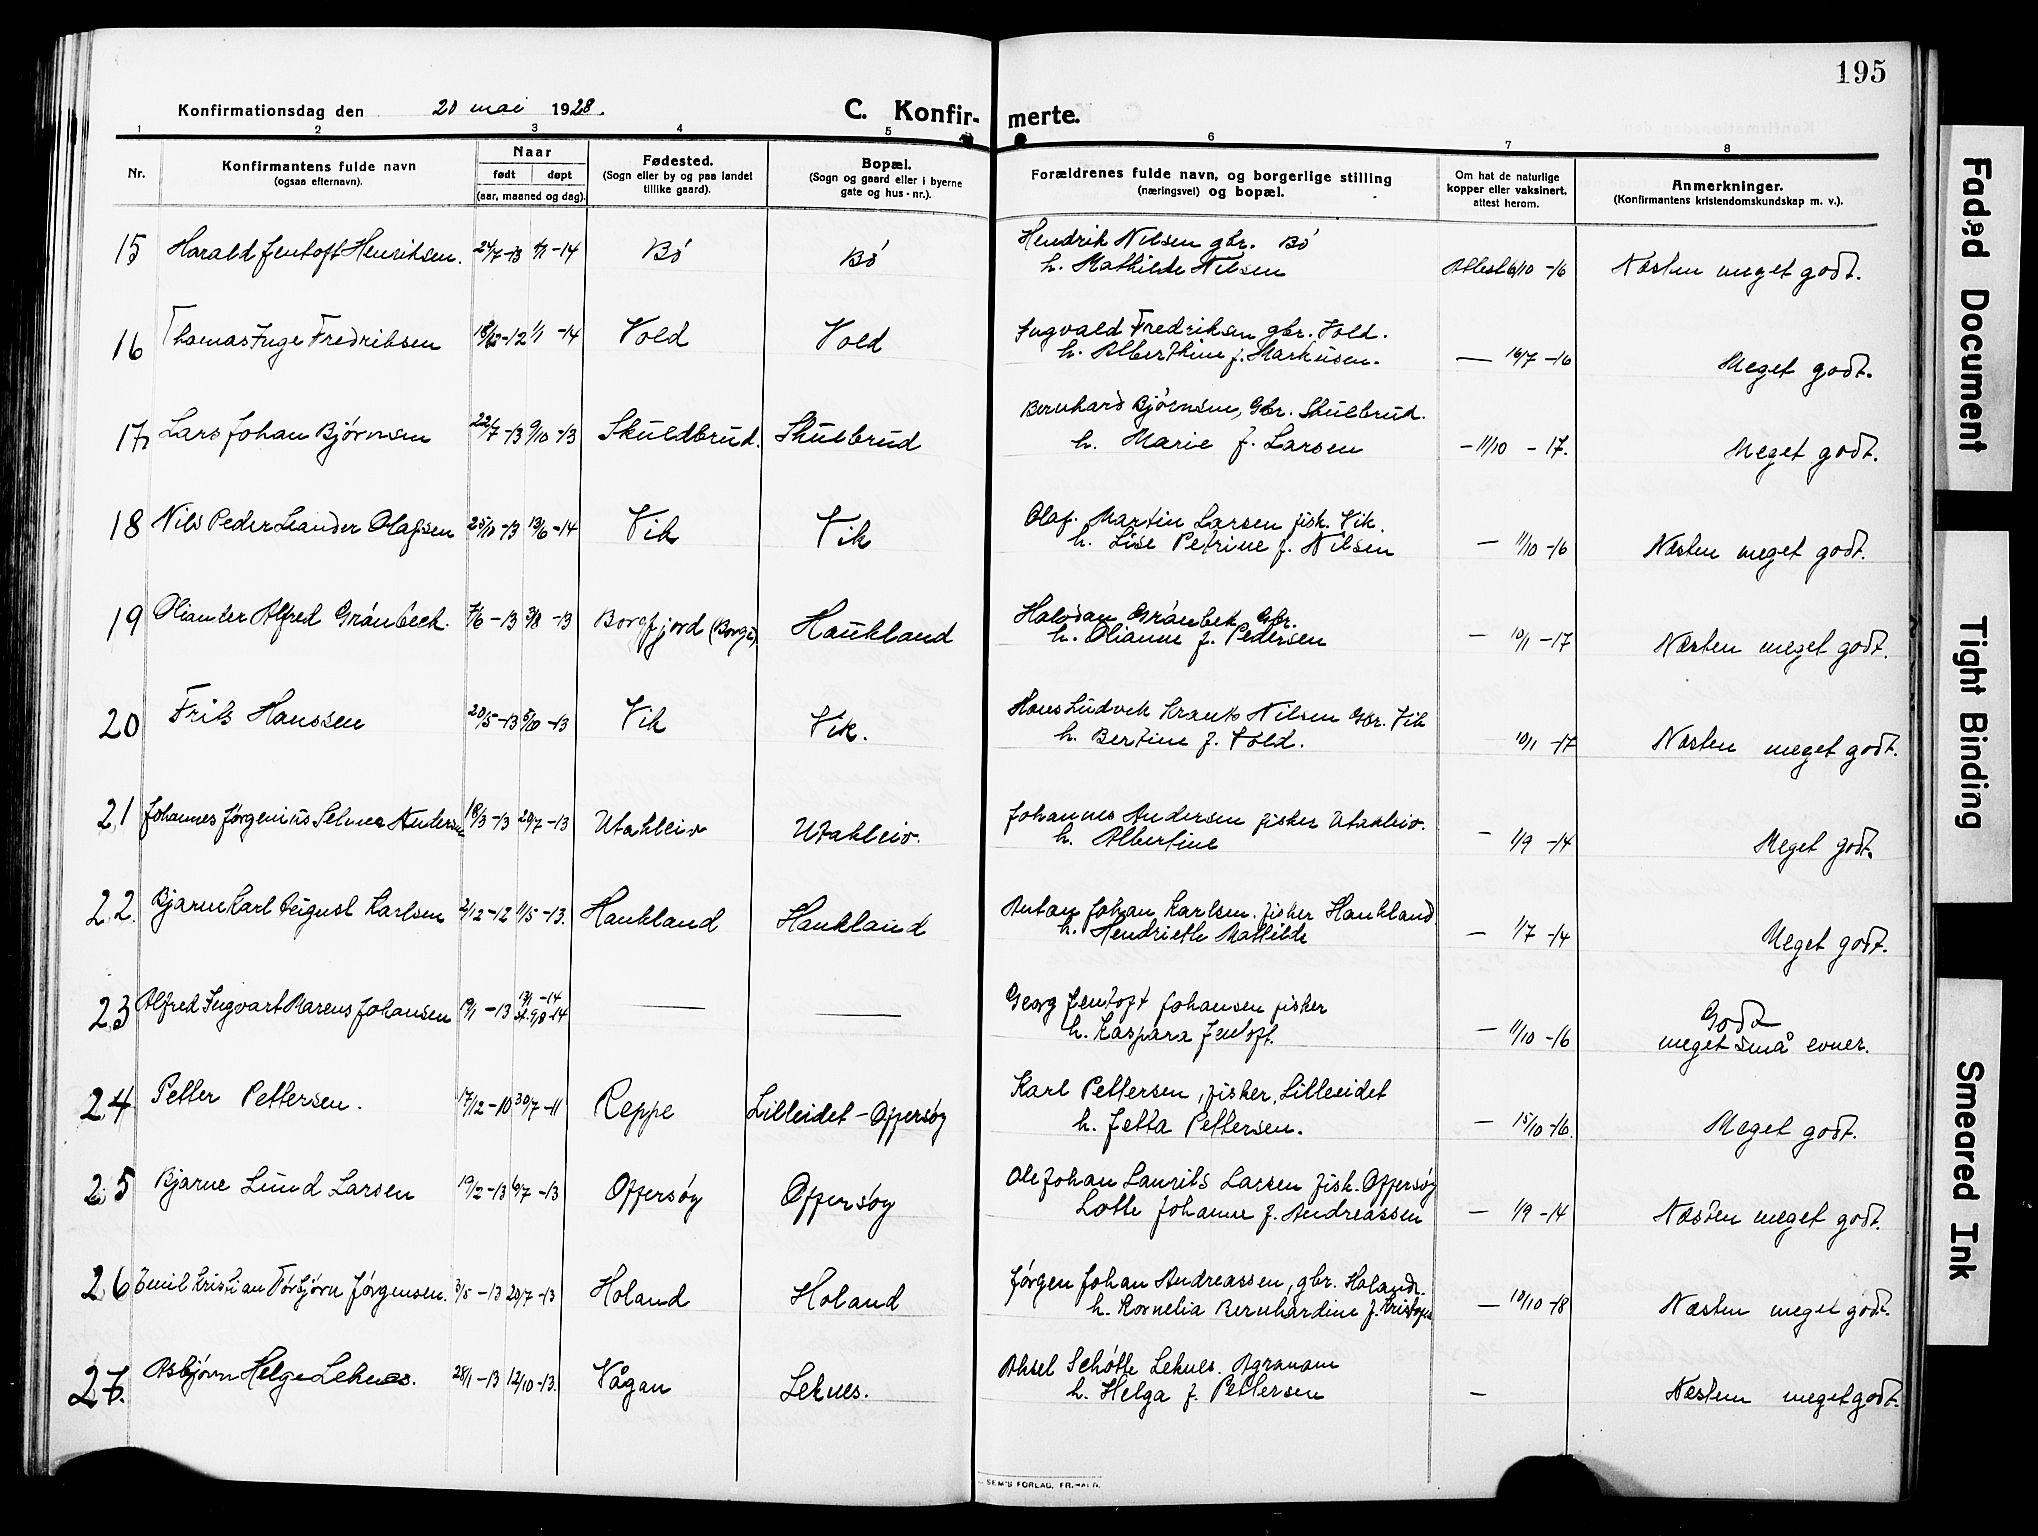 195
Konfirmationsdag den 20 mai 1928.
C. Konfir- merte.
1 2 3 4 5 6 7 8
Nr.
Konfirmantens fulde navn
(ogsaa efternavn).
Naar
født døpt
(aar, maaned og dag).
Fødested.
(Sogn eller by og paa landet
tillike gaard).
Bopæl.
(Sogn og gaard eller i byerne
gate og hus-nr.).
Forældrenes fulde navn, og borgerlige stilling
(næringsvei) og bopæl.
Om hat de naturlige
kopper eller vaksinert,
attest herom.
Anmerkninger.
(Konfirmantens kristendomskundskap m. v.).
15 Harald Jentoft Henriksen. 24/7-13 4/1-14 Bø Bø
Hendrik Nilsen gbr. Bø
h. Mathilde Nilsen Attest 6/10-16 Næsten meget godt.
16 Thomas Inge Fredriksen 18/12-12 1/1-14 Vold Vold
Ingvald Fredriksen gbr. Vold.
h. Alberthine f. Markusen. — 16/7-16 Meget godt.
17 Lars Johan Bjørnsen 22/7-13 9/10-13 Skuldbrud. Skulbrud
Bernhard Bjørnsen, Gbr. Skulbrud.
h. Marie f. Larsen — 11/10 - 17. Meget godt.
18 Nils Peder Leander Olafsen 25/10-13 13/6-14 Vik Vik
Olaf. Martin Larsen fisk. Vik.
h. Lise Petrine f. Nilsen — 11/10-16 Næsten meget godt.
19 Oliander Alfred Grønbeck. 7/6-13 3/8-13 Borgfjord (Borge) Haukland
Halvdan Grønbek Gbr.
h. Olianne f. Pedersen — 10/1-17 Næsten meget godt.
20 Frits Hanssen 20/5-13 5/10-13 Vik Vik.
Hans Ludvik Krants Nilsen Gbr. Vik
h. Bertine f. Vold. 10/1-17 Næsten meget godt.
21 Johannes Jørgenius Selmer Andersen 18/3-13 20/7-13 Utakleiv Utakleiv.
Johannes Andersen fisker Utakleiv.
h. Albertine — 1/9-14 Meget godt.
22. Bjarne Karl August Karlsen 2/12-12 1/5-13. Haukland Haukland
Anton Johan Karlsen. fisker Haukland
h. Hendriette Mathilde — 1/7-14 Meget godt.
23 Alfred Ingvart Marens Johansen 19/1-13 13/1-14
st. 9/8-14 — —
Georg Jentoft Johansen fisker
h. Kaspara Jentoft. — 11/10-16 Godt
meget små evner.
24 Petter Pettersen. 17/12-10 30/7-11 Reppe Lilleidet-Offersøy
Karl Pettersen, fisker, Lilleeidet
h. Jetta Pettersen. — 15/10-16. Meget godt.
25 Bjarne Lund Larsen 19/2-13 6/7-13 Offersøy Offersøy
Ole Johan Laurits Larsen fisk. Offersøy
Lotte Johanne f. Andreassen — 1/9-14 Næsten meget godt.
26 Emil Kristian Torbjørn Jørgensen. 3/5-13 20/7-13 Holand Holand
Jørgen Johan Andreassen, gbr. Holand.
h. Kornelia Bernhardine f. — 10/10-18 Næsten meget godt.
27. Asbjørn Helge Leknes. 28/1-13 12/10-13. Vågan Leknes.
Aksel Schøtte Leknes. Agronom
h. Helga f. Pettersen — Næsten meget godt.
SEM'S FORLAG, FR.HALD.
Faded Document
Tight Binding
Smeared Ink